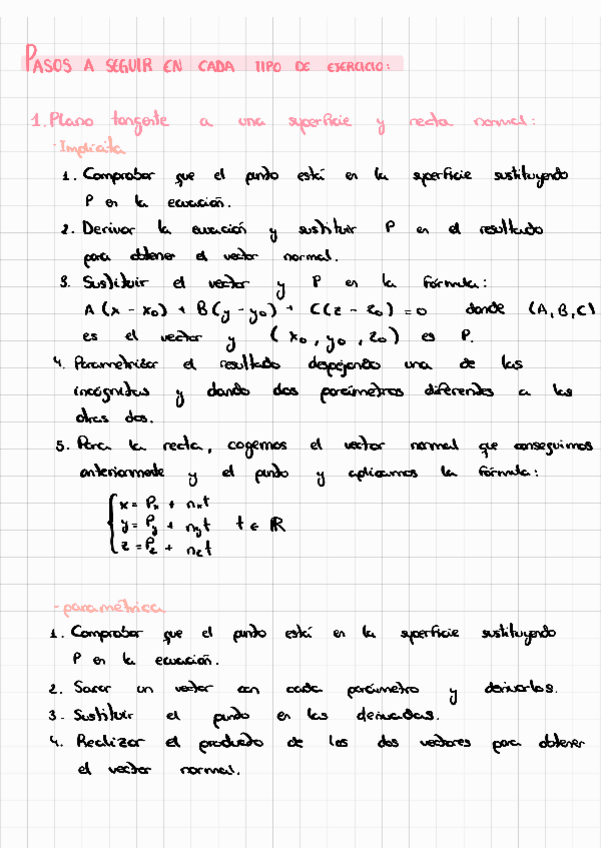 PASOS A SEGUIR EN CADA TIPO DE EJERCICIO:
1. Plano tangente a una superficie y recta normal:
- Implícita
1. Comprobar que el punto está en la superficie sustituyendo
P en la ecuación.
2. Derivar la ecuación y sustituir P en el resultado
para obtener el vector normal.
3. Sustituir el vector y P en la fórmula:
A(x - x₀) + B(y - y₀) + C(z - z₀) = 0 donde (A, B, C)
es el vector y (x₀, y₀, z₀) es P.
4. Parametrizar el resultado despejando una de las
incógnitas y dando dos parámetros diferentes a las
otras dos.
5. Para la recta, cogemos el vector normal que conseguimos
anteriormente y el punto y aplicamos la fórmula:
x = Pₓ + nₓt
y = P_y + n_y t t ∈ ℝ
z = P_z + n_z t
- paramétrica
1. Comprobar que el punto está en la superficie sustituyendo
P en la ecuación.
2. Sacar un vector con cada parámetro y derivarlos.
3. Sustituir el punto en las derivadas.
4. Realizar el producto de los dos vectores para obtener
el vector normal.